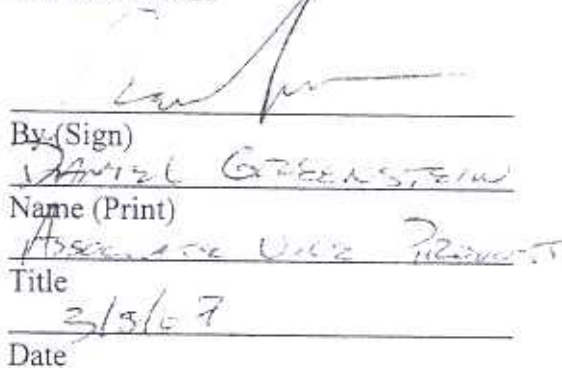 By (Sign)
DANIEL GREENSTEIN
Name (Print)
ASSOCIATE VICE PROVOST
Title
3/5/07
Date